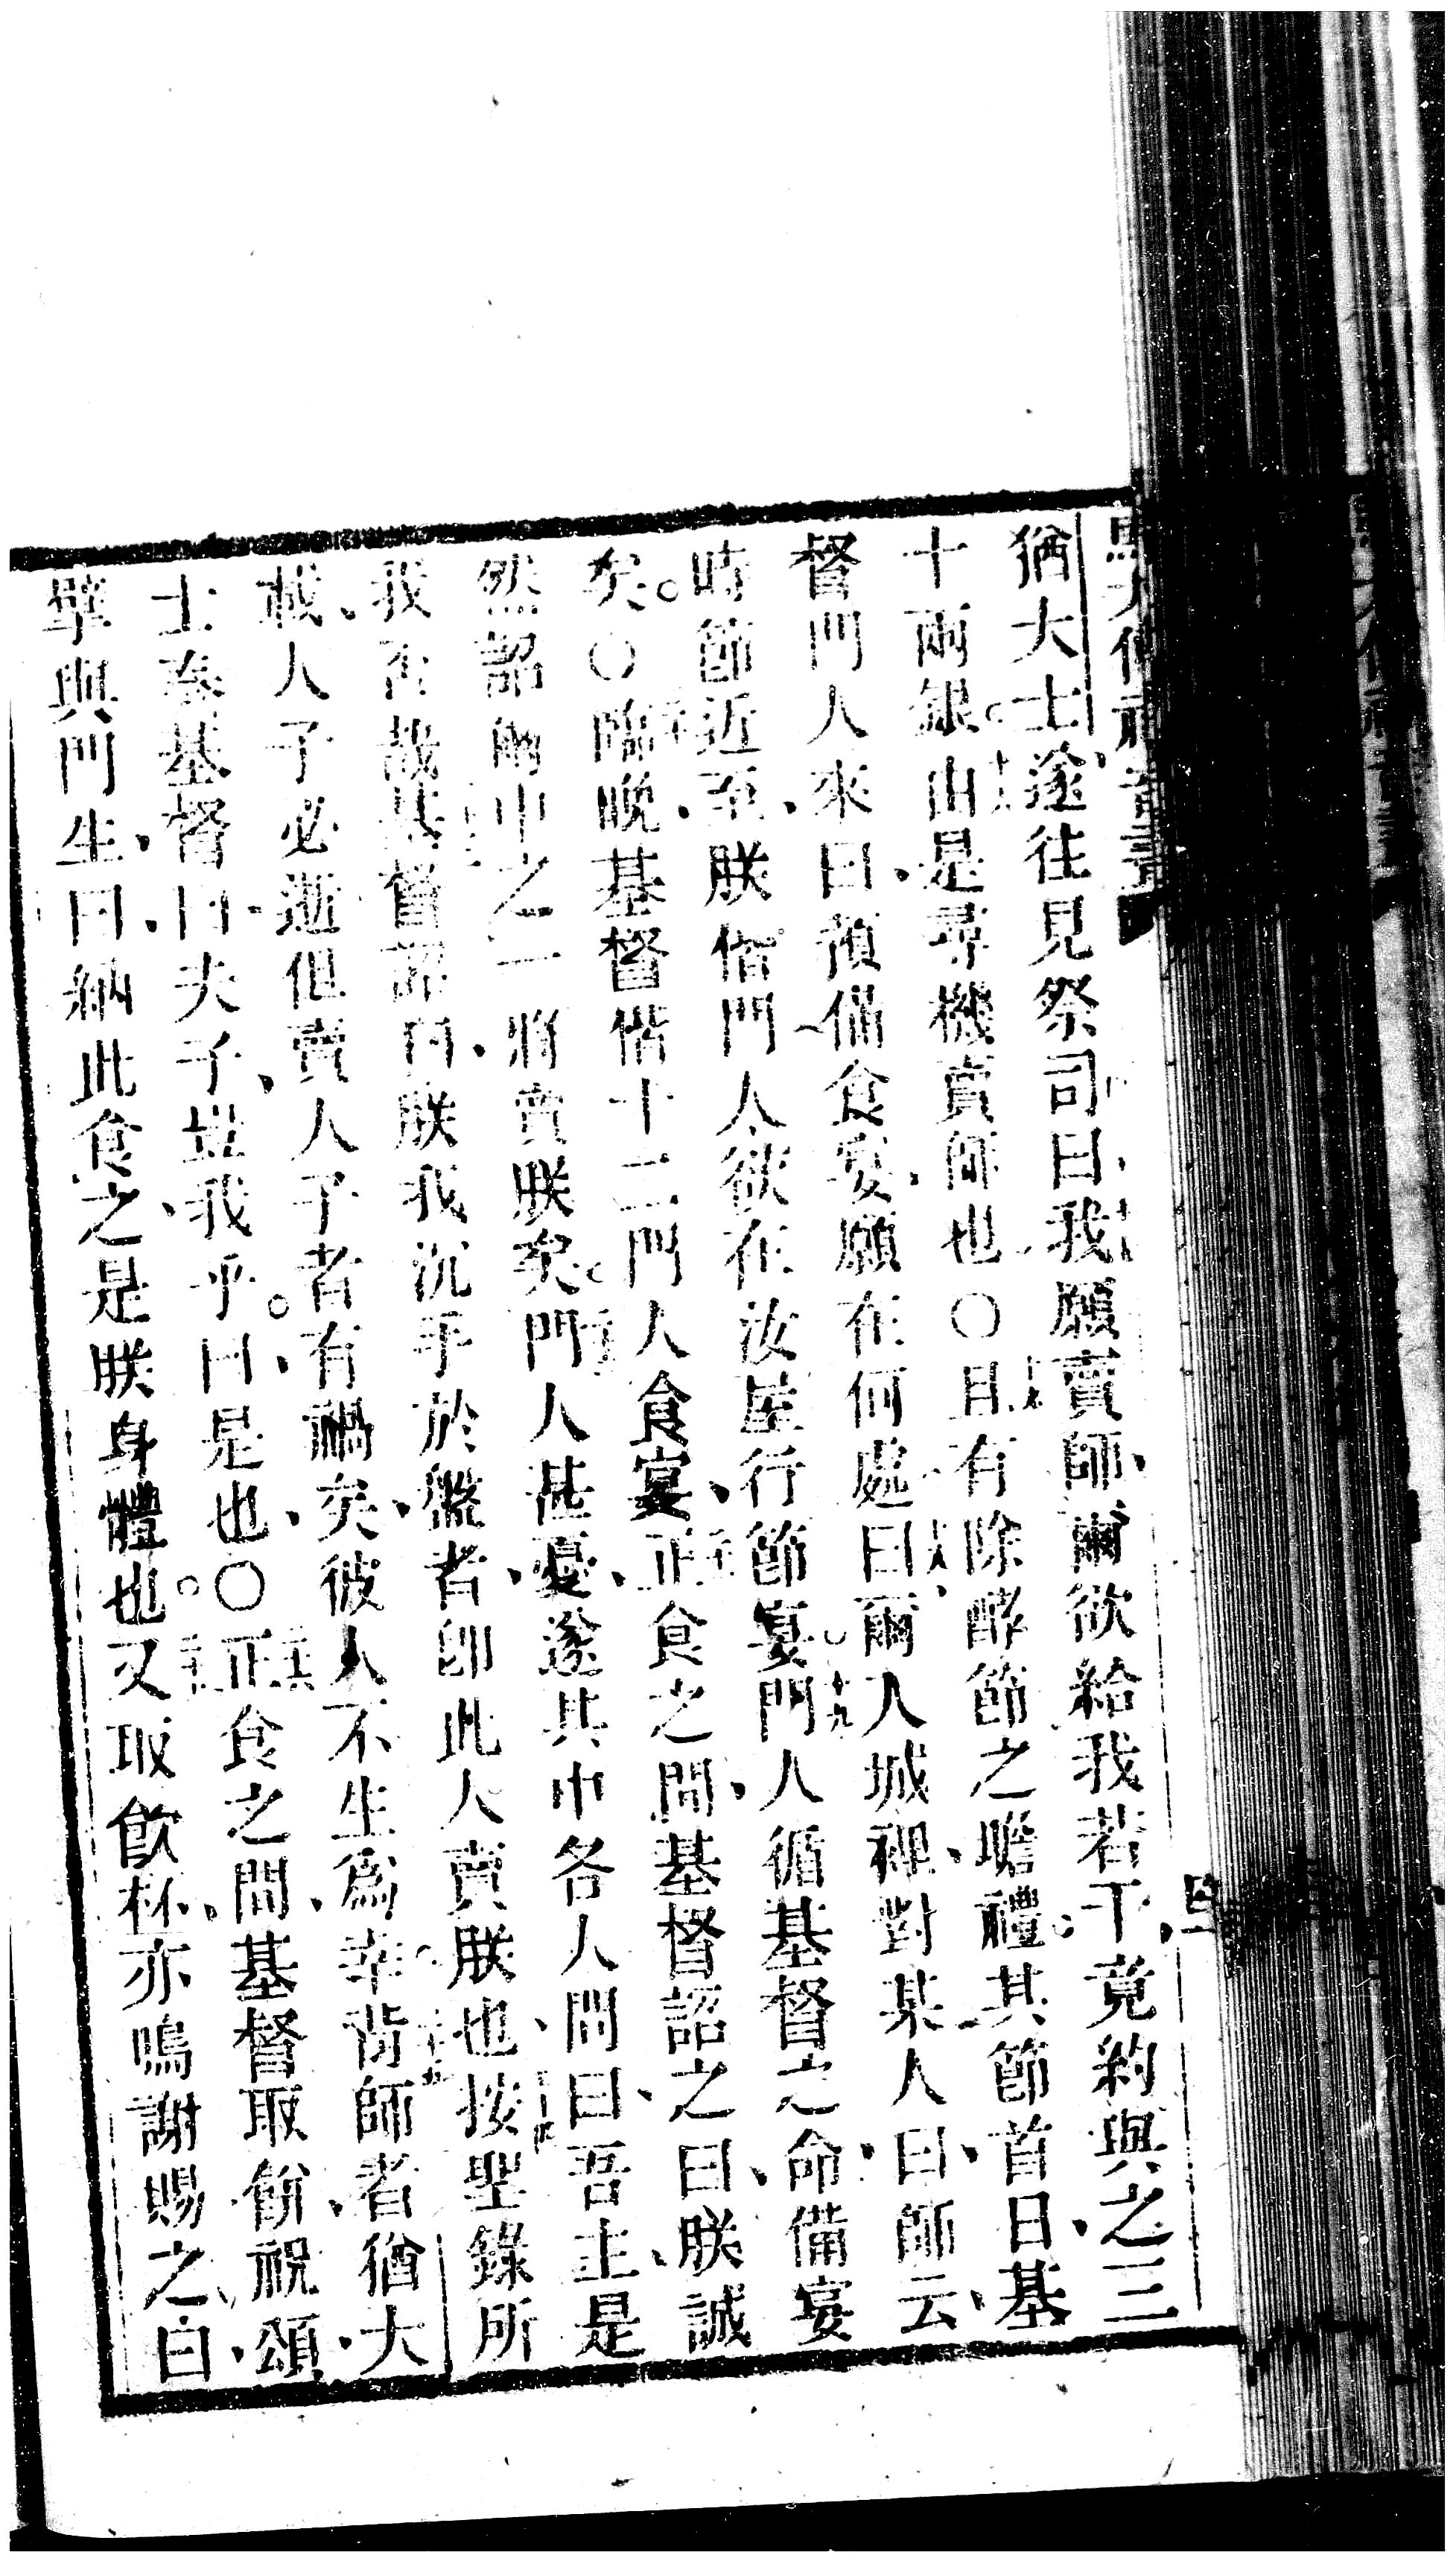 馬太傳福音書
猶大士遂往見祭司曰我願賣師、爾欲給我若干、竟約與之三
十兩銀。由是尋機賣師也○且有除酵節之瞻禮。其節首日、基
督門人來曰、預備食宴、願在何處曰爾入城裡、對某人曰、師云、
時節近至、朕偕門人欲在汝屋行節宴。門人循基督之命、備宴
矣。○臨晚、基督偕十二門人食宴、正食之間、基督詔之曰、朕誠
然詔爾中之一將賣朕矣。門人甚憂、遂其中各人問曰、吾主是
我否哉基督詔曰、朕我沉手於盤者、卽此人賣朕也、按聖錄所
載、人子必逝但賣人子者有禍矣、彼人不生爲幸。背師者猶大
士奏基督曰夫子、豈我乎。曰、是也、○正食之間、基督取餅、祝頌、
擘與門生、曰、納此食之、是朕身體也。又取飲杯、亦鳴謝賜之、曰、